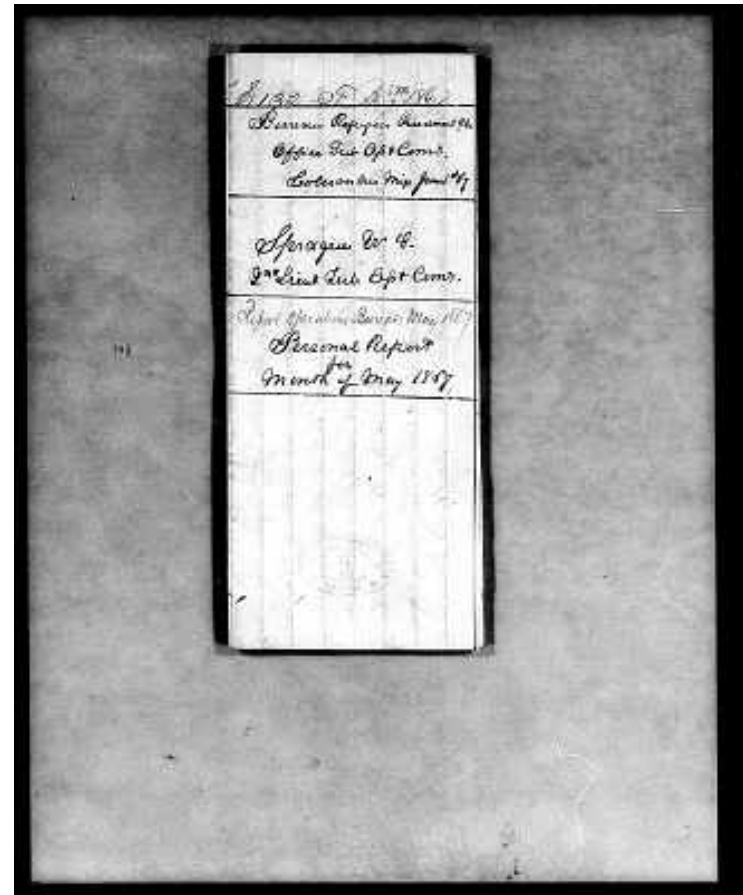 S 132
Bureau Refugees Freedmen &c.
Office Sub Asst Comr.
Columbus Miss June 67
Sprague W. C.
2nd Lieut Sub Asst Comr.
Report Operations Bureau May 1867
Personal Report
for
Month of May 1867